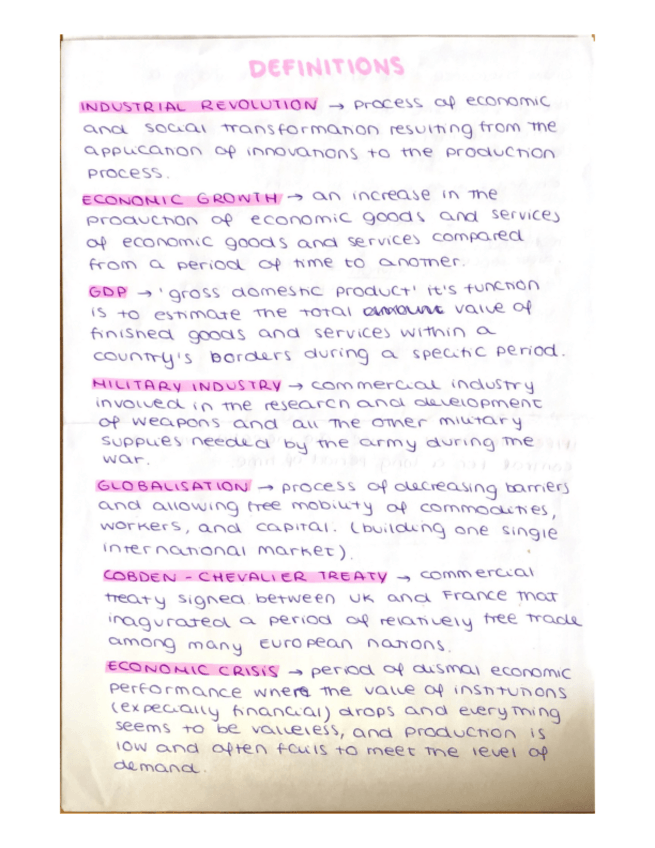 DEFINITIONS
INDUSTRIAL REVOLUTION → process of economic
and social transformation resulting from the
application of innovations to the production
process.
ECONOMIC GROWTH → an increase in the
production of economic goods and services
of economic goods and services compared
from a period of time to another.
GDP → 'gross domestic product' it's function
is to estimate the total amount value of
finished goods and services within a
country's borders during a specific period.
MILITARY INDUSTRY → commercial industry
involved in the research and development
of weapons and all the other military
supplies needed by the army during the
war.
GLOBALISATION → process of decreasing barriers
and allowing free mobility of commodities,
workers, and capital. (building one single
international market).
COBDEN - CHEVALIER TREATY → commercial
treaty signed between UK and France that
inagurated a period of relatively free trade
among many European nations.
ECONOMIC CRISIS → period of dismal economic
performance where the value of institutions
(expecially financial) drops and everything
seems to be valueless, and production is
low and often fails to meet the level of
demand.